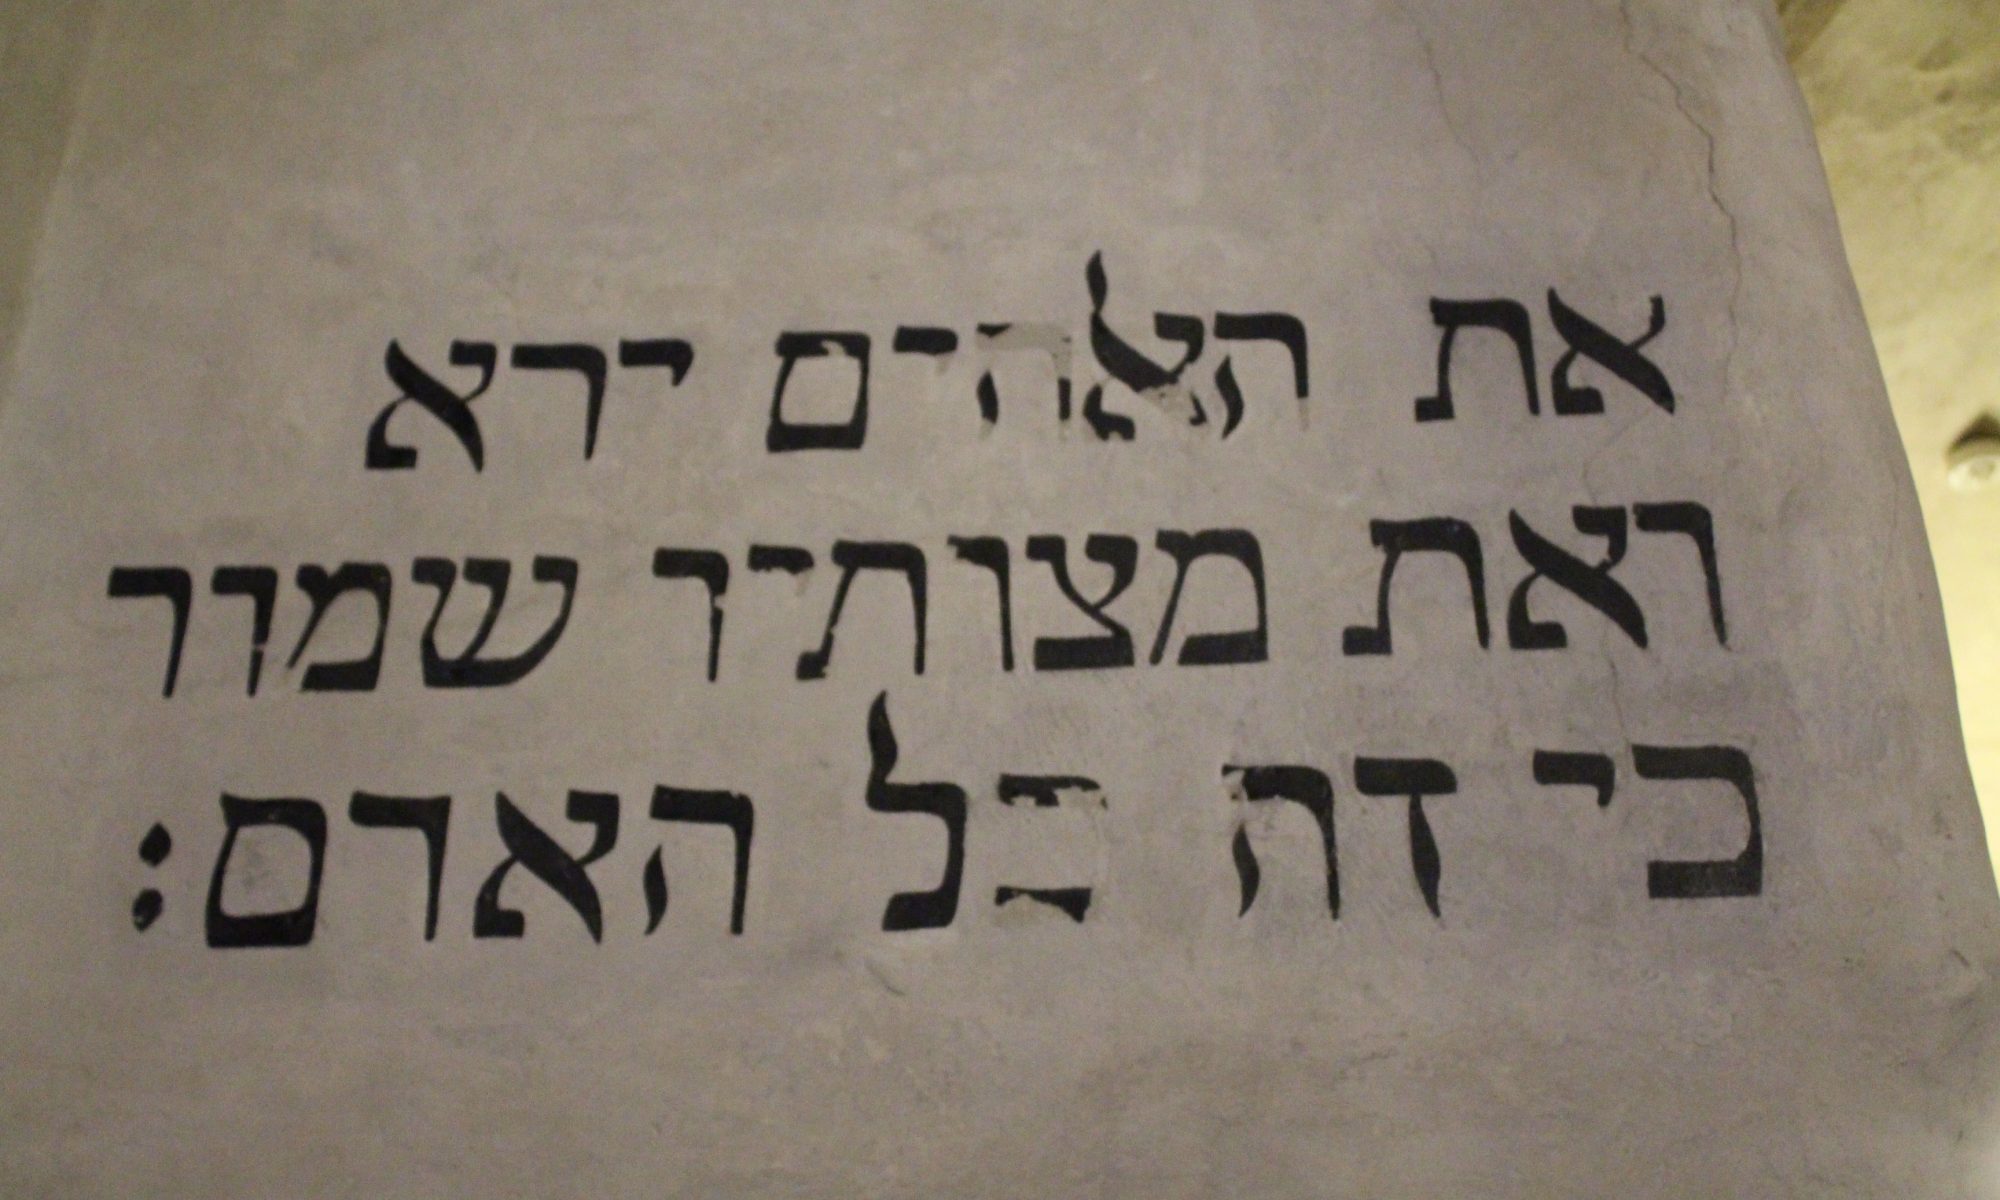 את האלהים ירא
ואת מצותיו שמור
כי זה כל האדם: